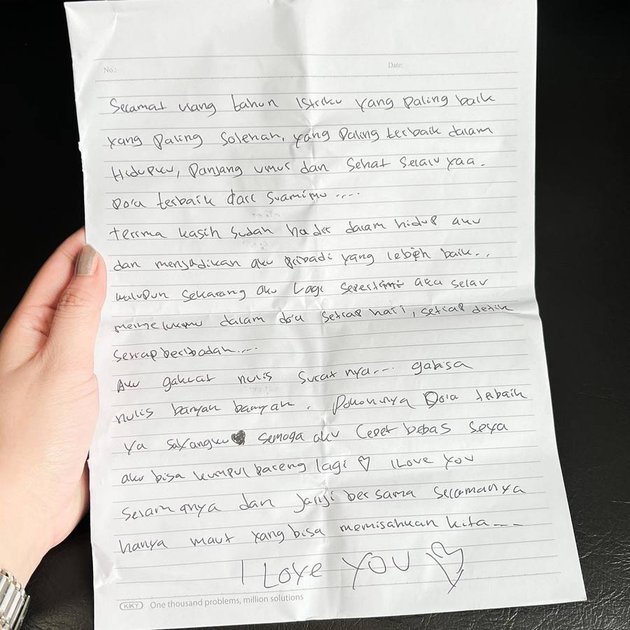 No.: Date:
Selamat ulang tahun Istriku yang paling baik
yang paling Solehah, yang paling terbaik dalam
Hidupku, Panjang umur dan Sehat Selalu yaa.
Do'a terbaik dari Suamimu....
terima kasih sudah hadir dalam hidup aku
dan menjadikan aku pribadi yang lebih baik..
walupun sekarang aku lagi seperti ini aku selalu
memelukmu dalam do'a setiap hari, setiap detik
setiap beribadah....
Aku gakuat nulis surat nya... gabisa
nulis banyak banyak. Pokoknya Do'a terbaik
ya sayangku ♥ semoga aku cepet bebas seya
aku bisa kumpul bareng lagi ♡ I Love You
selamanya dan Janji bersama selamanya
hanya maut yang bisa memisahkan kita....
I Love YOU
KKY One thousand problems, million solutions